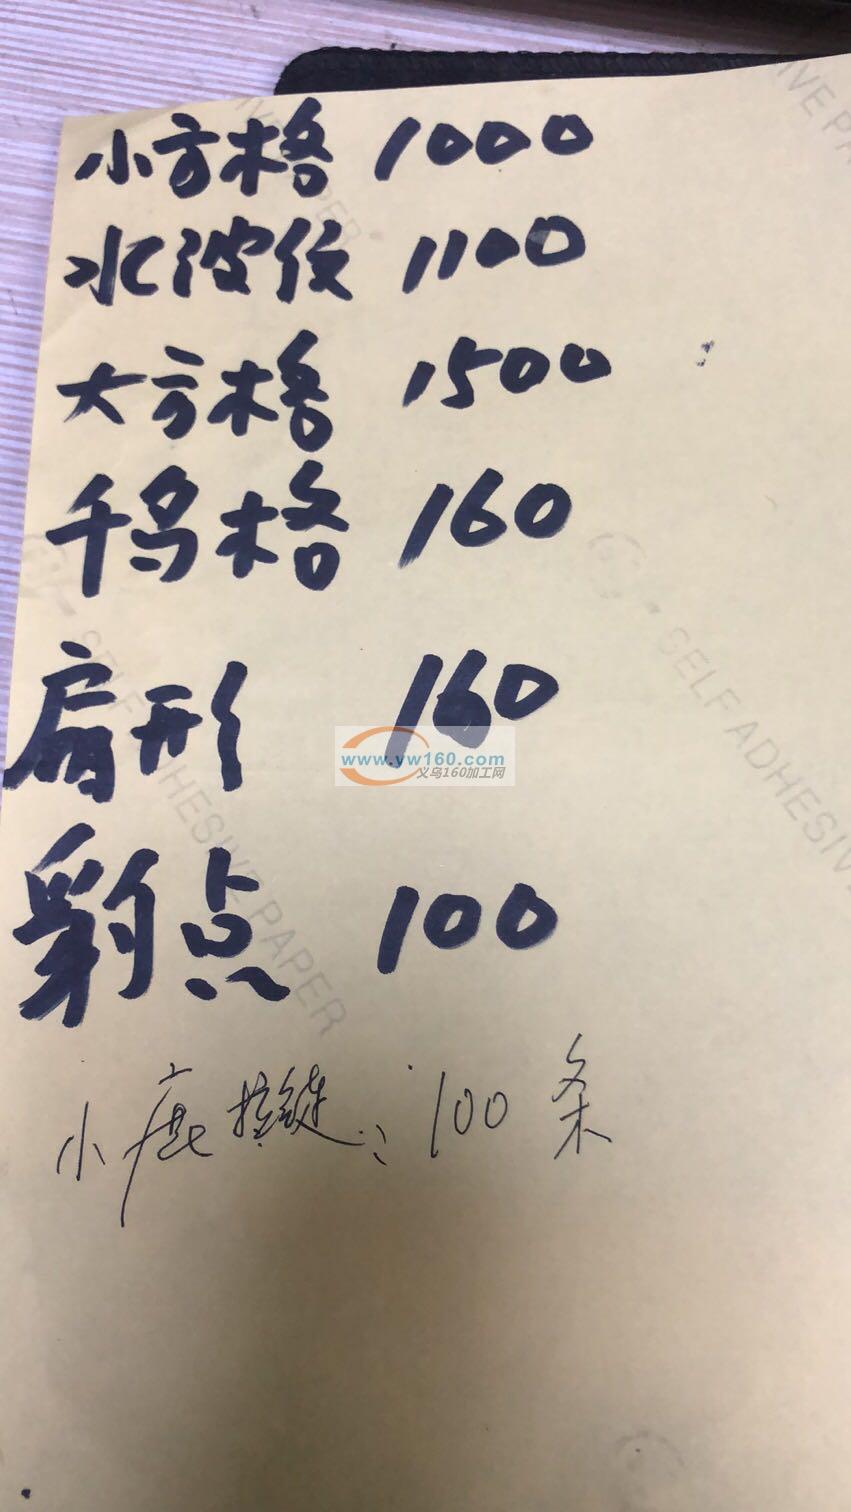 小方格 1000
水波纹 1100
大方格 1500
千鸟格 160
扇形 160
www.yw160.com
义乌160加工网
豹点 100
小鹿按键: 100条
SELF ADHESIVE PAPER
SELF ADHESIVE